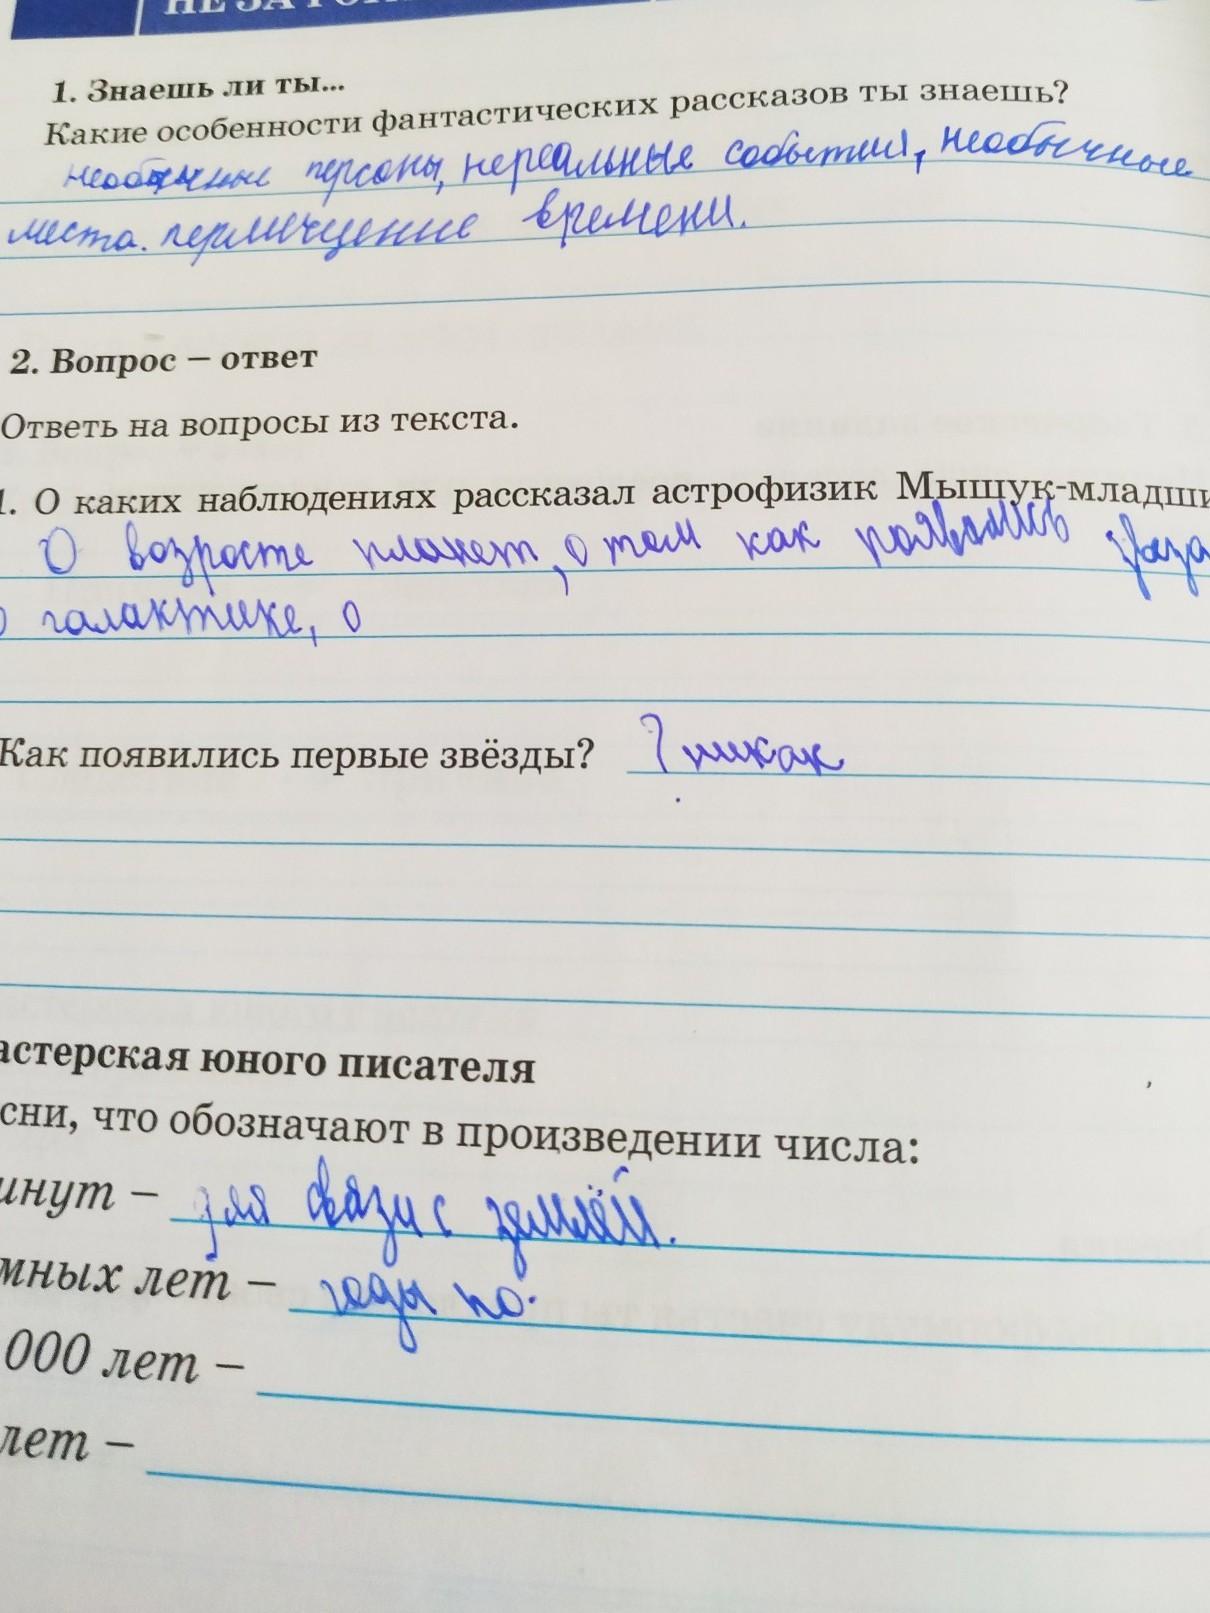 НЕ ЗА ГОР
1. Знаешь ли ты...
Какие особенности фантастических рассказов ты знаешь?
необычные персоны, нереальные события, необычные
места. перемещение времени.
2. Вопрос – ответ
Ответь на вопросы из текста.
1. О каких наблюдениях рассказал астрофизик Мышук-младши
О возросте планет, о том как появились
о галактике, о
Как появились первые звёзды? ? никак
астерская юного писателя
сни, что обозначают в произведении числа:
инут – для связи с землёй.
мных лет – годы по.
000 лет –
лет –